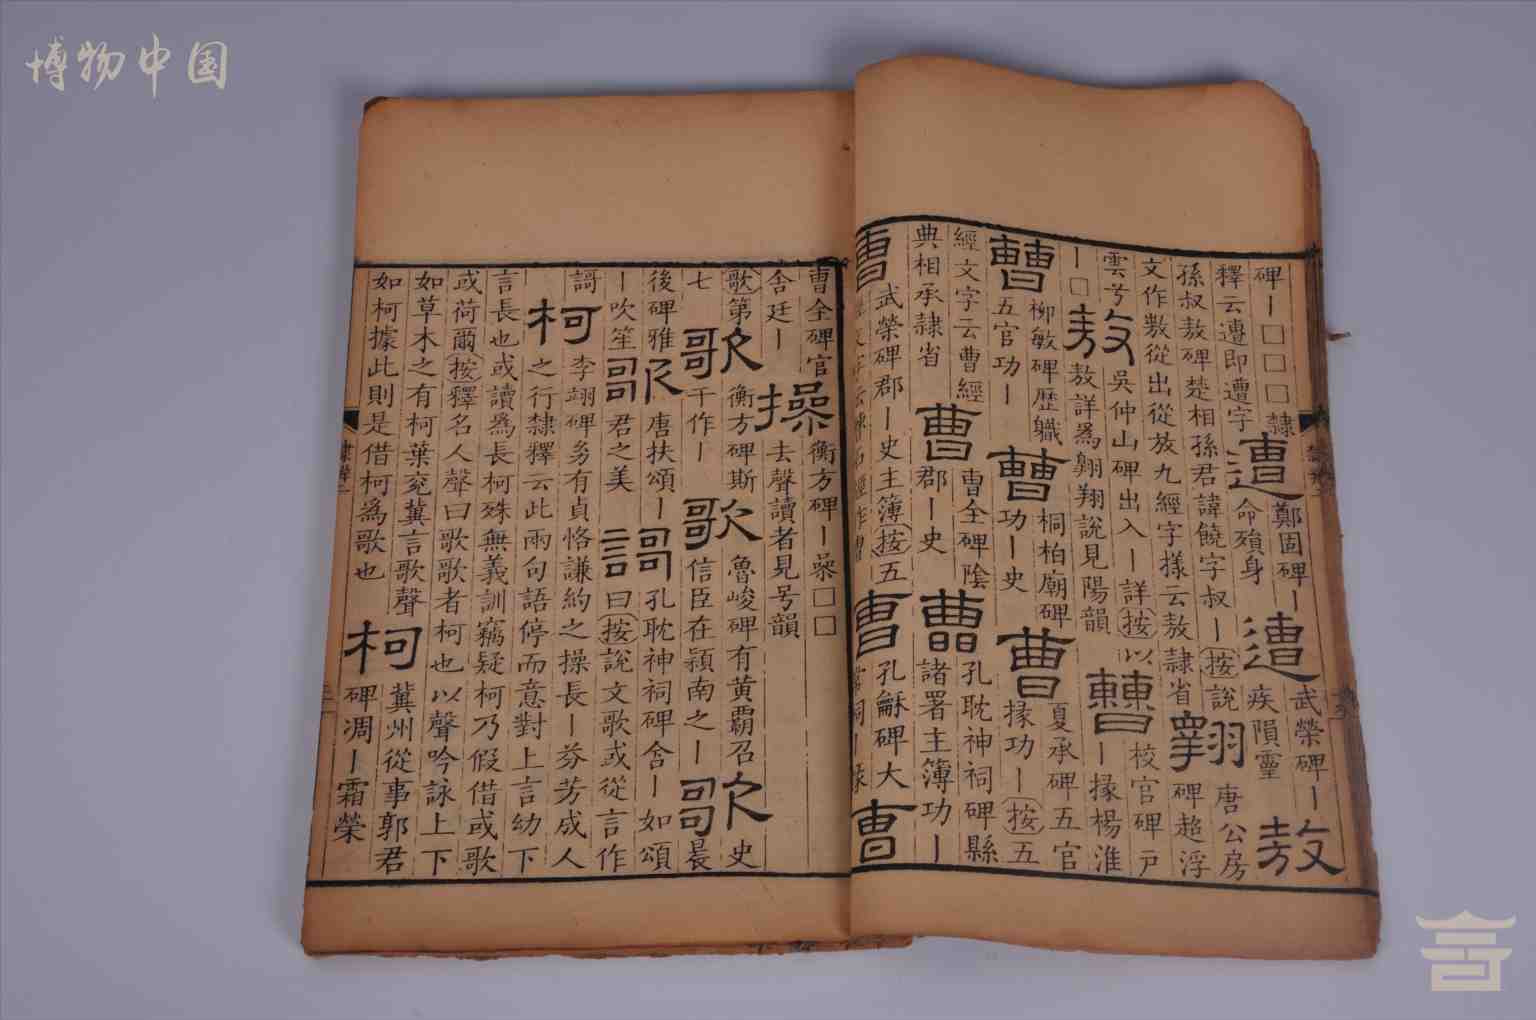 博物中国
碑丨□□□隸
釋云遭即遭字
遭
鄭固碑丨
命殞身
遭
武榮碑丨
疾隕靈
敖
孫叔敖碑楚相孫君諱饒字叔丨按說
文作敖從出從放九經字樣云敖隸省
翱
唐公房
碑超浮
雲兮
丨□
敖
吳仲山碑出入丨詳按以
敖詳爲翱翔說見陽韻
曹
校官碑戸
丨掾楊淮
曹
柳敏碑歷職
五官功丨
曹
桐柏廟碑
功丨史
曹
夏承碑五官
掾功丨按五
經文字云曹經
典相承隸省
曹
曹全碑陰
郡丨史
曹
孔耽神祠碑縣
諸署主簿功丨
曹
武榮碑郡丨史主簿按五
曹
孔龢碑大
常祠丨掾
曹
曹全碑官
舍廷丨
操
衡方碑丨喿□□
去聲讀者見号韻
歌第
七
歌
衡方碑斯
干作丨
歌
魯峻碑有黃霸召
信臣在潁南之丨
歌
史
晨
後碑雅
丨吹笙
歌
唐扶頌丨
君之美
謌
孔耽神祠碑舍丨如頌
曰按說文歌或從言作
謌
柯
李翊碑多有貞恪謙約之操長丨芬芳成人
之行隸釋云此兩句語停而意對上言幼下
言長也或讀爲長柯殊無義訓竊疑柯乃假借或歌
或荷爾按釋名人聲曰歌歌者柯也以聲吟詠上下
如草木之有柯葉兗冀言歌聲
如柯據此則是借柯爲歌也
柯
冀州從事郭君
碑凋丨霜榮